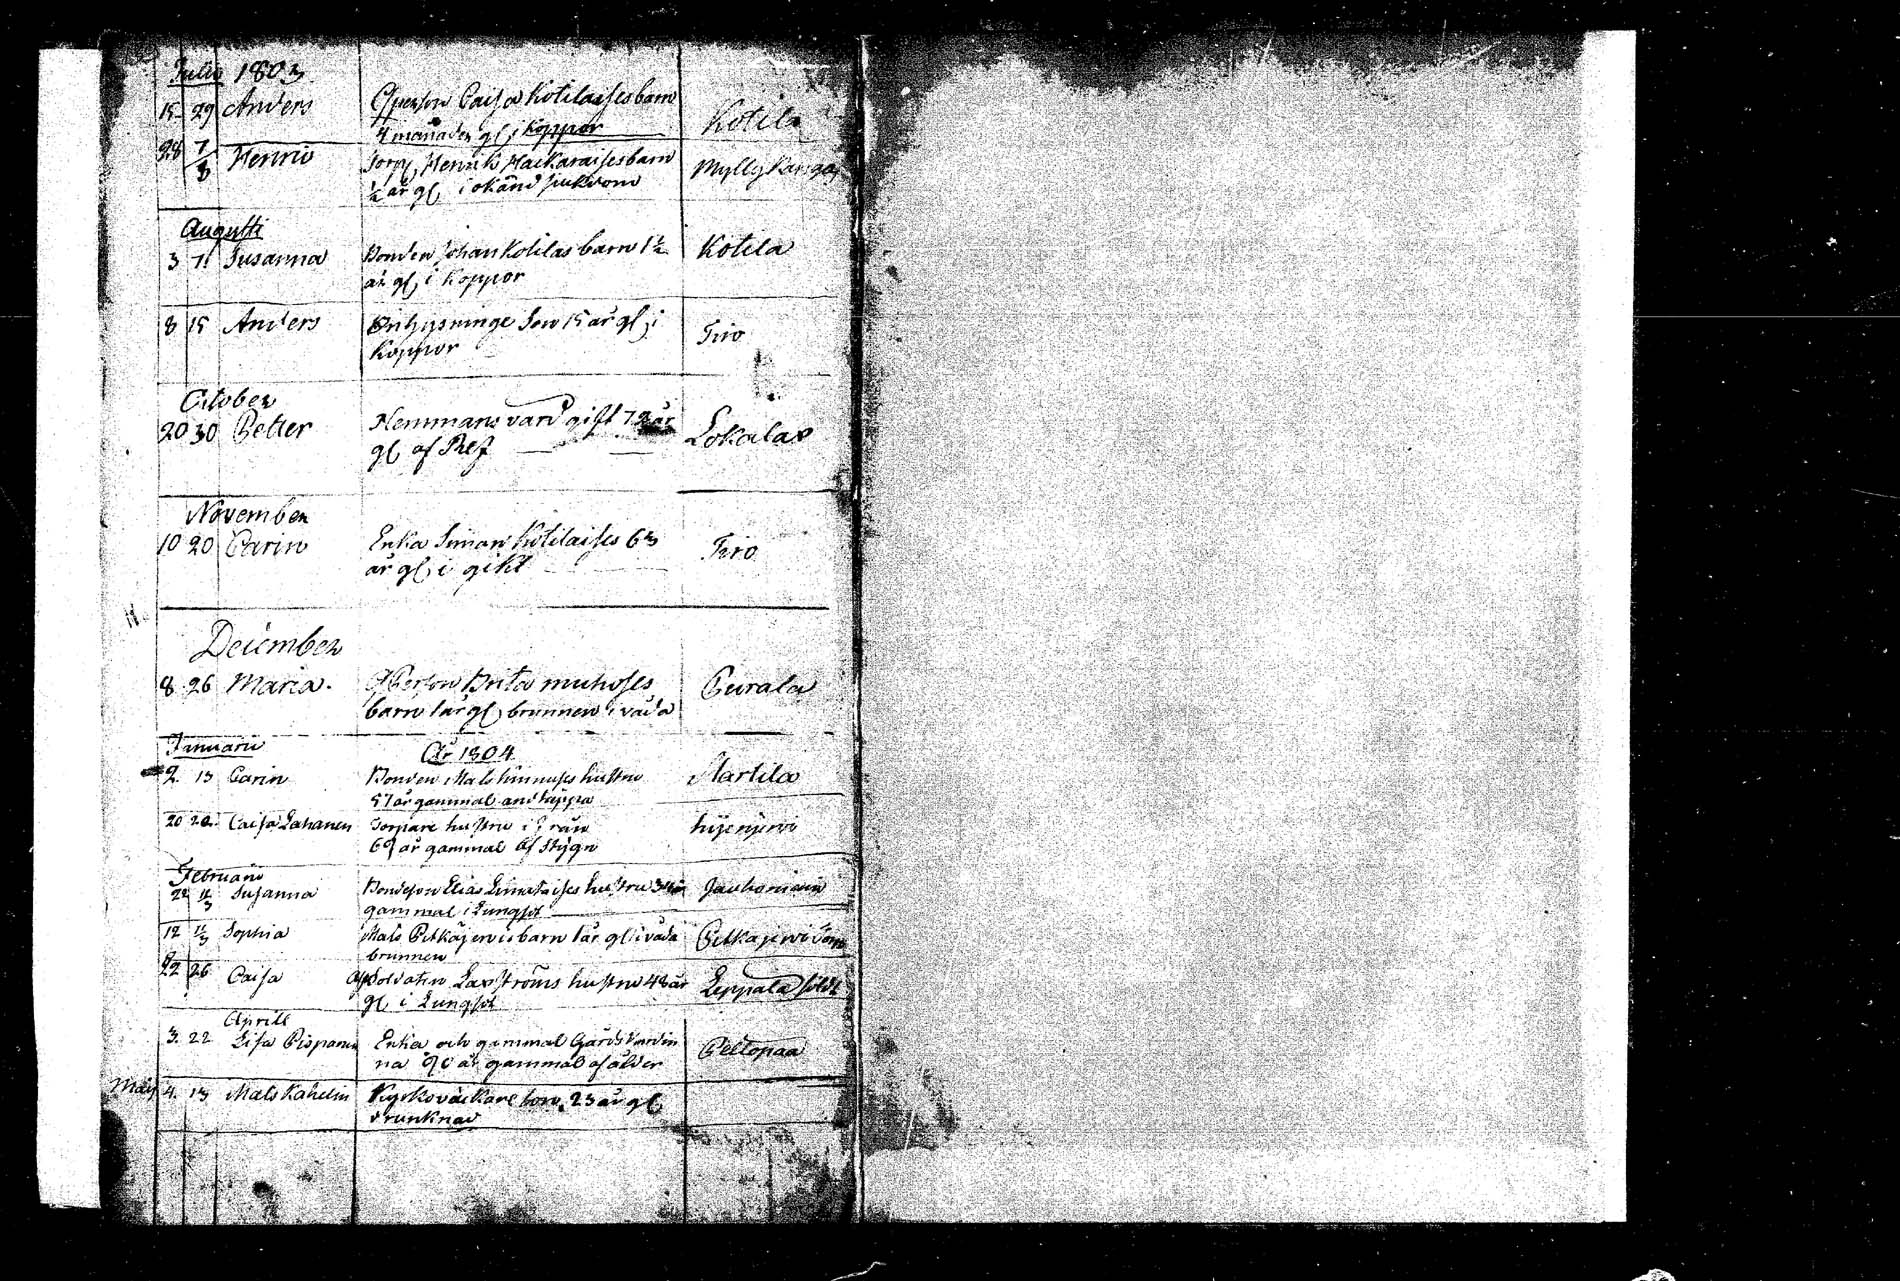 Julii 1803
15 29 Anders Qperson Caisa Kotilaises barn Kotila
4 månader gl i koppor
28 7/8 Henric Torp Henrik Mackaraises barn Myllykangas
½ år gl i okänd sjukdom
Augusti
3 7 Susanna Bonden Johan Kotilas barn 1½ Kotila
år gl i koppor
8 15 Anders Inhysninge Son 15 år gl i Tiro
koppor
October
20 30 Petter Hemmans gift 72 år Lokalax
gl af
November
10 20 Carin Enka Simon Kotilaises 63 Tiro
år gl i gikt
December
8 26 Maria. Qperson Brita muhoses Peurala
barn 1 år gl brunnen i våda
Januarii År 1804
2 13 Carin Bonden Mats kinnuses hustru Martila
57 år gammal andtäppa
20 Caisa Lahanen Torpare hustru ifrån
69 år gammal af Stygn
Februario
22 Susanna Bondeson Elias hustru
gammal i Lungsot
12 Sophia Mats Pitkäjervis barn 1 år gl i våda Pitkajervi
brunnen
22 26 Caisa Soldaten Laxströms hustru 48 år Leppala
gl i Lungsot
Aprill
3. 22 Lisa Pispanen Enka och gammal Gårds Värdin Peltopaa
na 90 år gammal af ålder
Maij 4. 13 Mats Kahelin Kyrkoväckare son. 23 år gl
drunknad